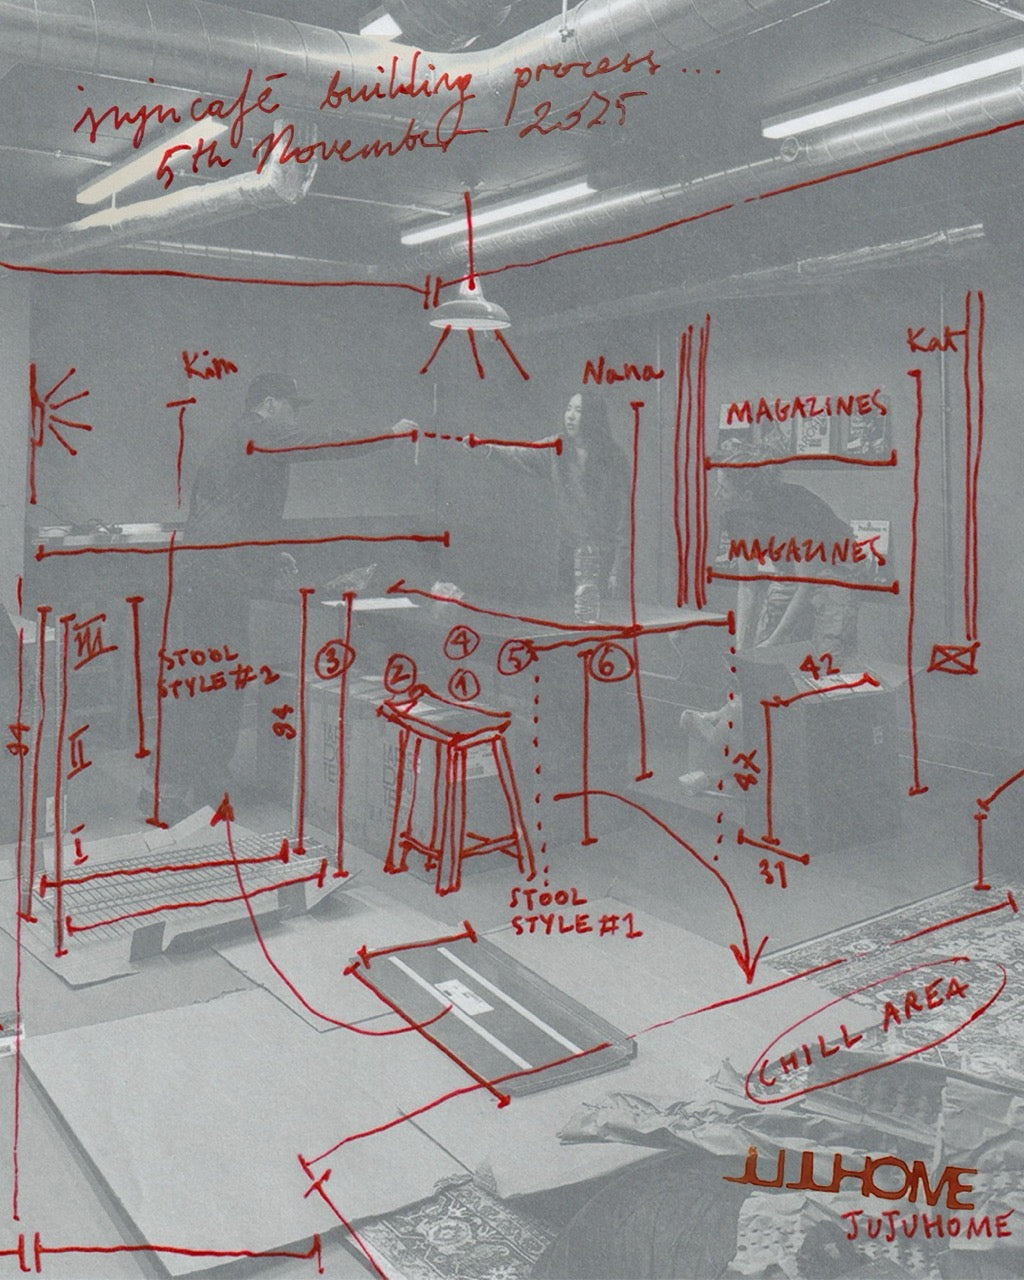 injncafé building process...
5th November 2025
Kim
Nana
Kat
MAGAZINES
MAGAZINES
III
II
I
STOOL
STYLE #2
94
94
3
2
4
1
5
6
42
47
31
STOOL
STYLE #1
CHILL AREA
JUJUHOME
JUJUHOME